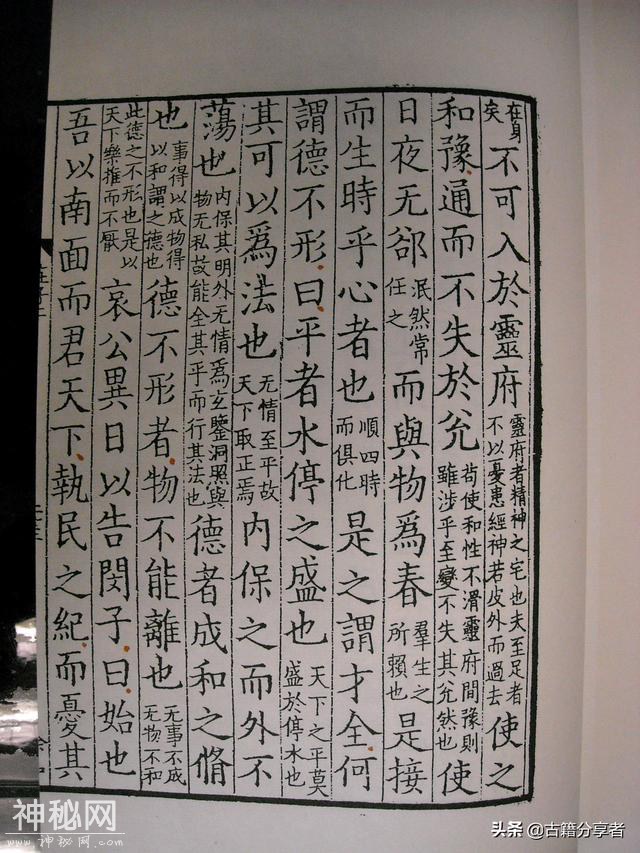 在身矣不可入於靈府靈府者精神之宅也夫至足者不以憂患經神若皮外而過去使之
和豫通而不失於兊苟使和性不滑靈府閒豫則雖涉乎至變不失其兊然也使
日夜无郤泯然常任之而與物爲春羣生之所賴也是接
而生時乎心者也順四時而俱化是之謂才全何
謂德不形曰平者水停之盛也天下之平莫盛於停水也
其可以爲法也无情至平故天下取正焉内保之而外不
蕩也内保其明外无情爲玄鑒洞照與物无私故能全其平而行其法也德者成和之脩
也事得以成物得以和謂之德也德不形者物不能離也无事不成无物不和
此德之不形也是以天下樂推而不厭哀公異日以告閔子曰始也
吾以南面而君天下執民之紀而憂其
神秘网
www.神秘网.com
头条 @古籍分享者